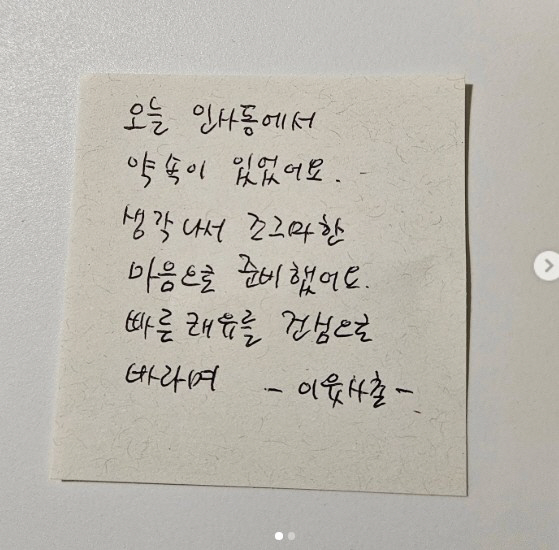 오늘 인사동에서
약속이 있었어요.
생각나서 조그마한
마음으로 준비했어요.
빠른 쾌유를 진심으로
바라며 - 이웃사촌 -